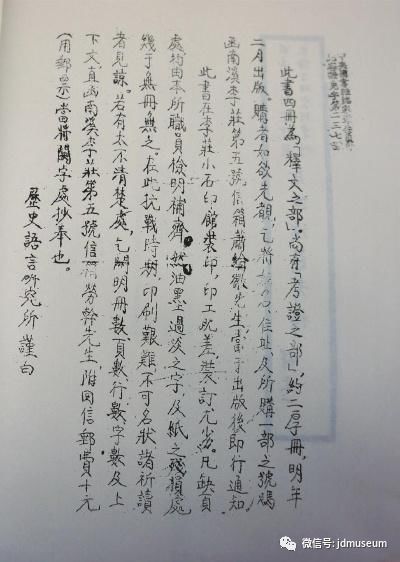 此書四冊為「釋文之部」，尚有「考證之部」，約二厚冊，明年
二月出版。購者如欲先覩，乞將姓名、住址及所購一部之號碼
函南溪李莊第五號信箱蕭綸徽先生，當于出版後即行通知。
此書在李莊小石印館裝印，印工既差，裝訂尤劣。凡缺頁
處均由本所職員檢明補齊，然油墨過淡之字，及紙之殘損處
幾乎無冊無之。在此抗戰時期，印刷艱難，不可名狀，諸祈讀
者見諒。若有太不清楚處，乞開明冊數、頁數、行數、字數及上
下文，直函南溪李莊第五號信箱勞榦先生，附回信郵費十元
（用郵票）當將闕字處抄奉也。
歷史語言研究所 謹白
微信号: jdmuseum